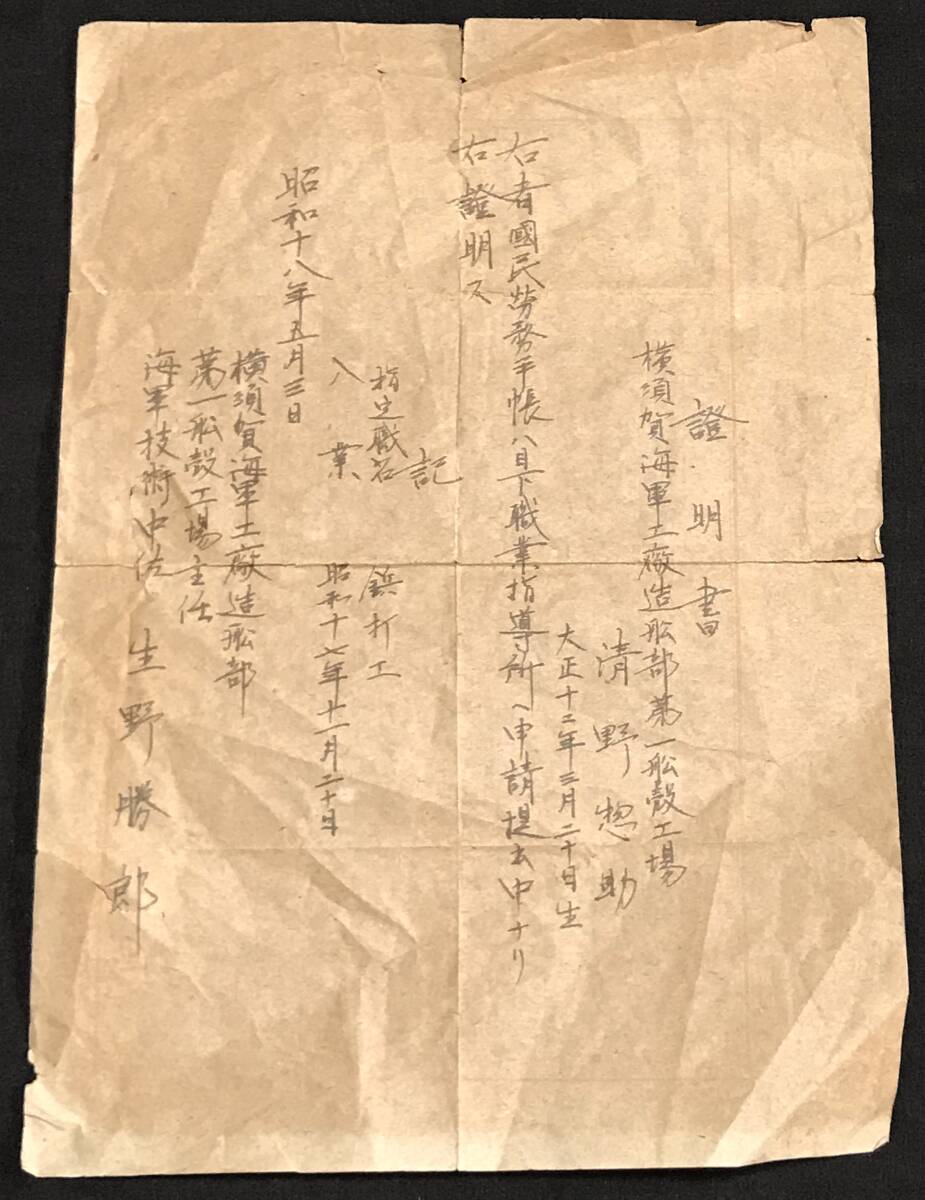 證明書
横須賀海軍工廠造船部第一船殻工場
清野惣助
大正十二年三月二十日生
右者國民労務手帳八目下職業指導所へ申請提出中ナリ
右證明ス
記
指定職名 鋲打工
入業 昭和十七年十一月二十日
昭和十八年五月三日
横須賀海軍工廠造船部
第一船殻工場主任
海軍技術中佐 生野勝郎